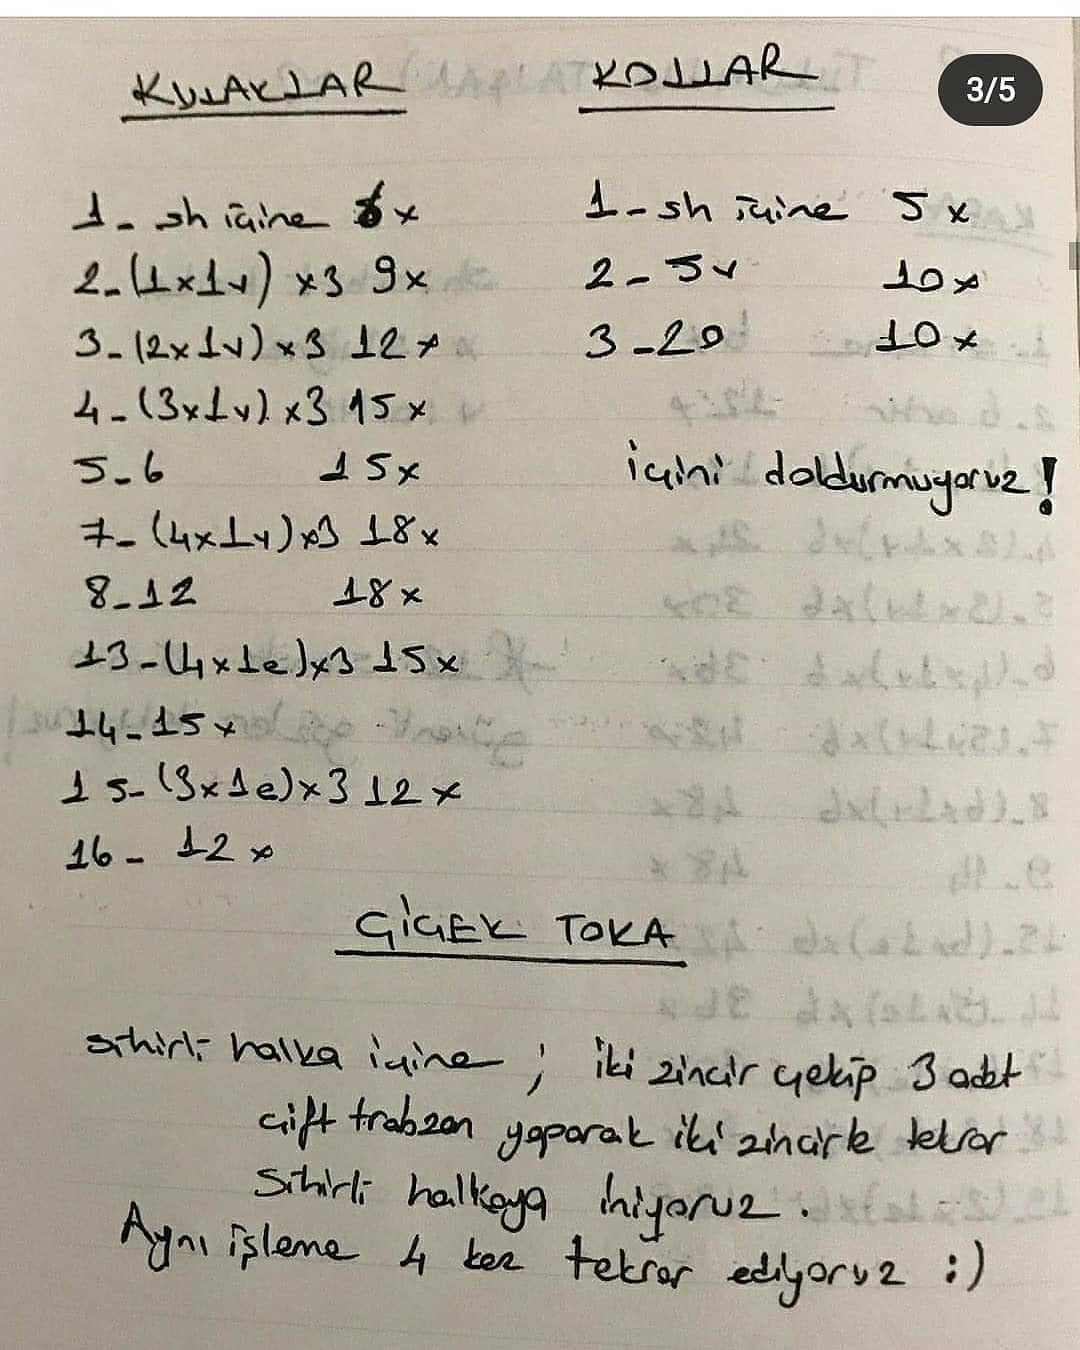 KULAKLAR
1- sh içine 6x
2-(1x1v) x3 9x
3-(2x1v) x3 12x
4-(3x1v) x3 15x
5-6 15x
7-(4x1v)x3 18x
8-12 18x
13-(4x1e)x3 15x
14-15x
15-(3x1e)x3 12x
16- 12x
KOLLAR
3/5
1-sh içine 5x
2-5v 10x
3-20 10x
içini doldurmuyoruz!
ÇİÇEK TOKA
sihirli halka içine ; iki zincir çekip 3 adet
çift trabzan yaparak iki zincirle tekrar
sihirli halkaya iniyoruz.
Aynı işleme 4 kez tekrar ediyoruz :)